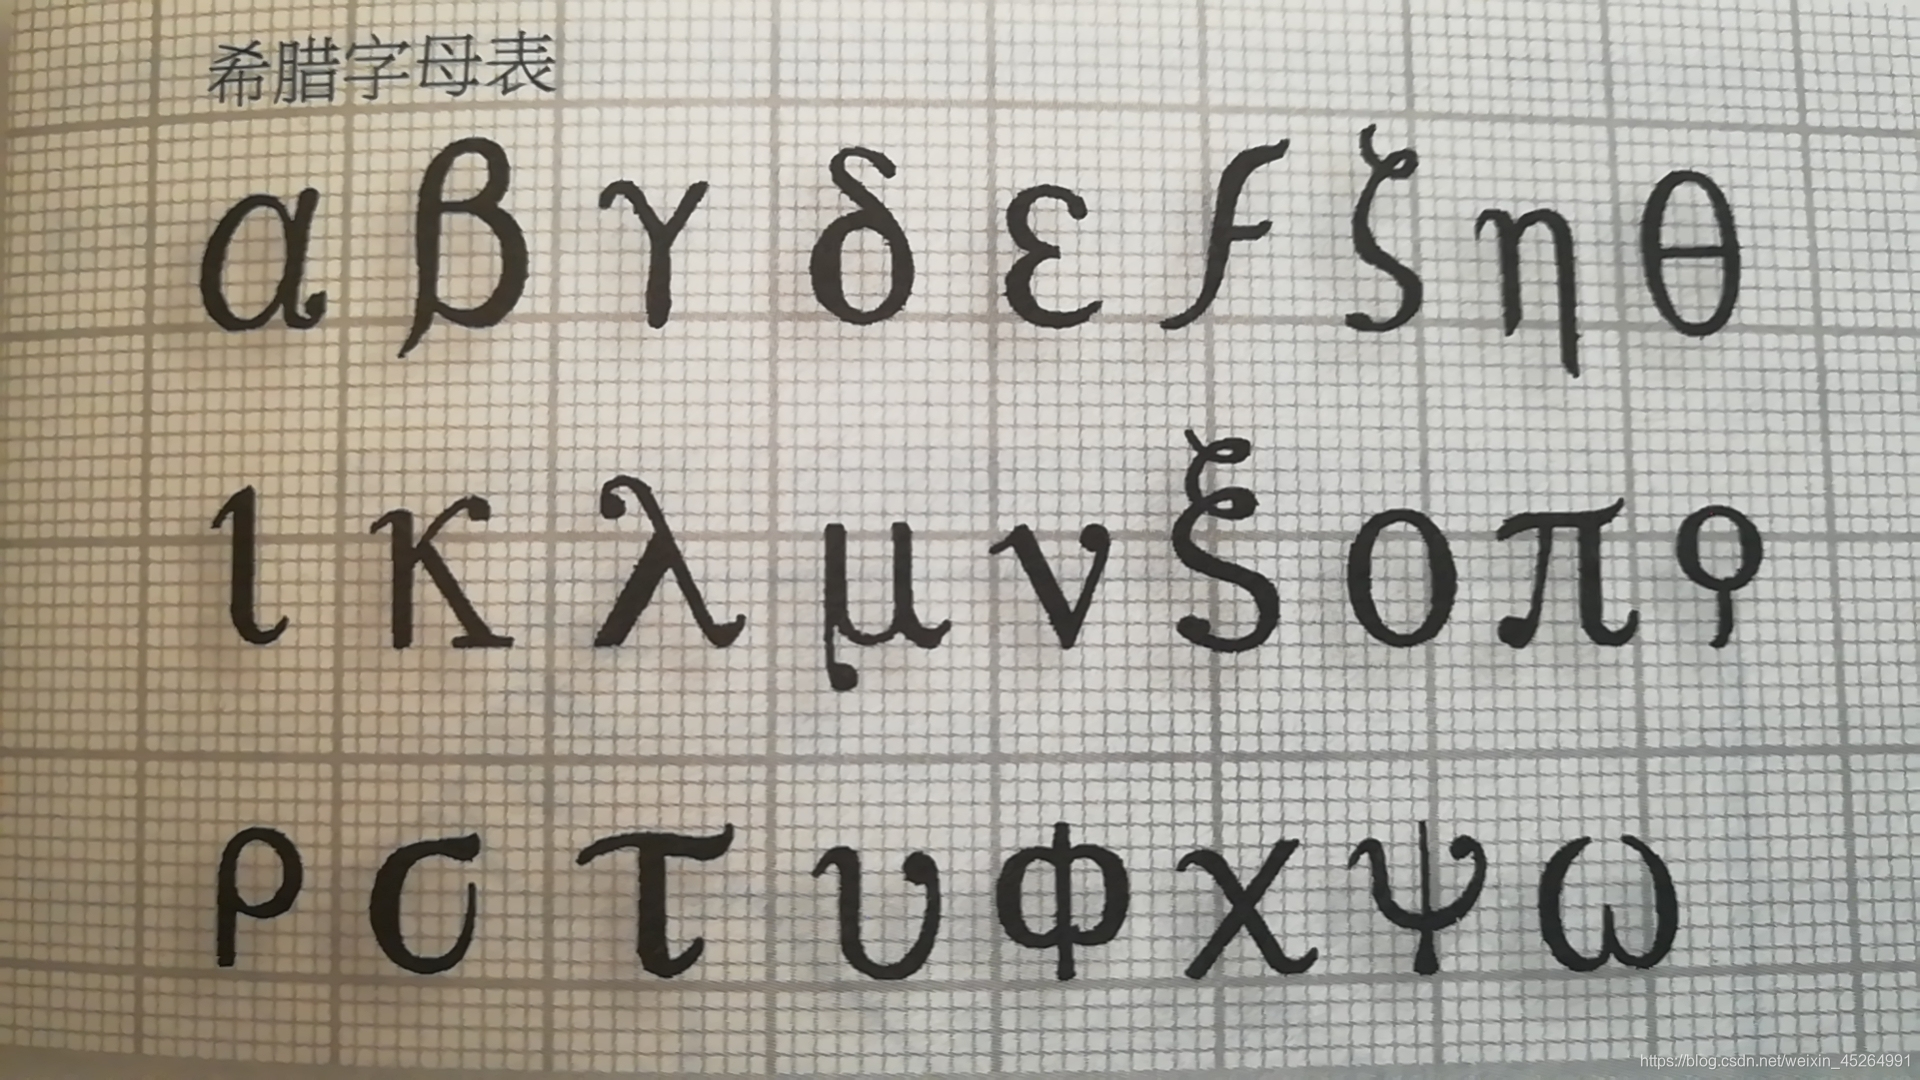 希腊字母表
α β γ δ ε ϝ ζ η θ
ι κ λ μ ν ξ ο π ϙ
ρ σ τ υ φ χ ψ ω
https://blog.csdn.net/weixin_45264991